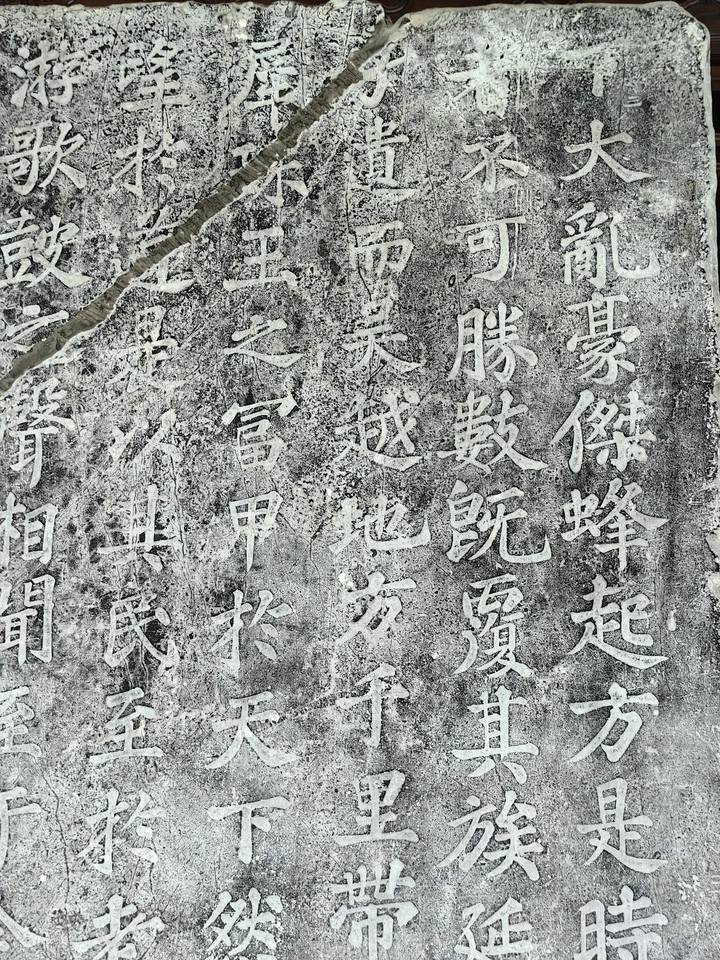 下大亂豪傑蜂起方是時
者不可勝數既覆其族延
孑遺而吳越地方千里帶
犀珠玉之冨甲於天下然
望於道是以其民至於老
游歌鼓之聲相聞至于今